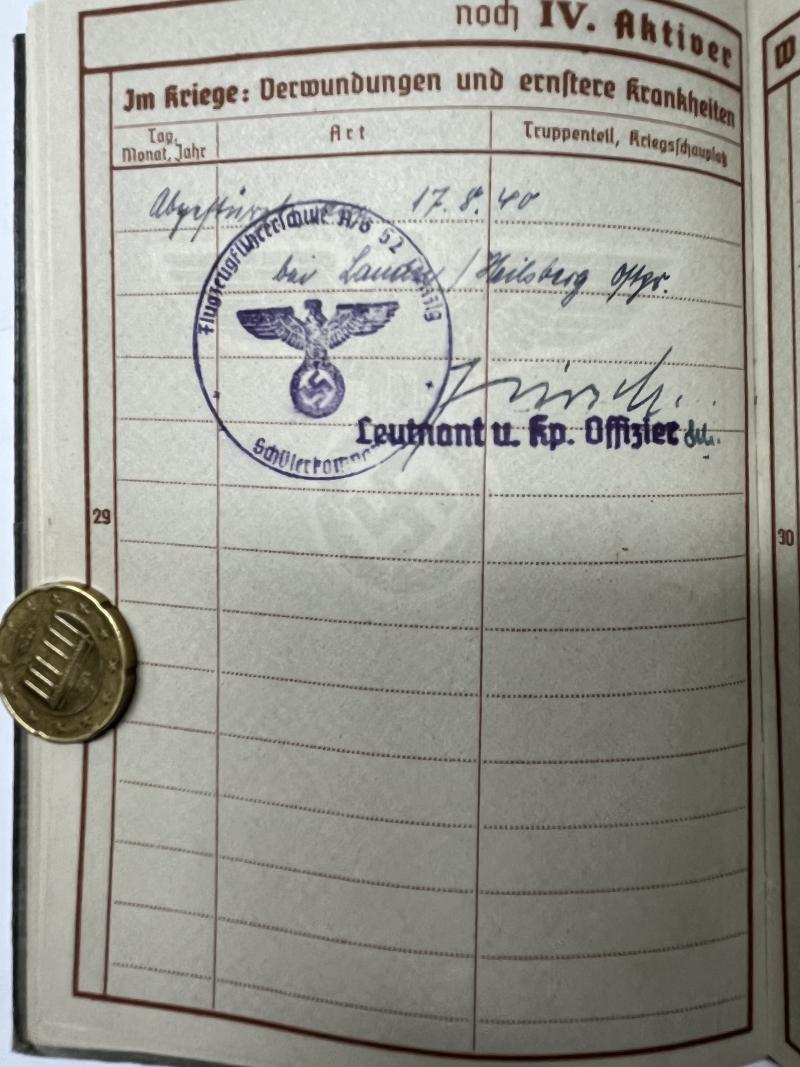 noch IV. Aktiver
W
Im Kriege: Verwundungen und ernstere Krankheiten
Tag, Monat, Jahr
Art
Truppenteil, Kriegsschauplatz
Abgestürzt 17. 8. 40
bei Landau / Heilsberg Ostpr.
Flugzeugführerschule A/B 52
Schülerkomp
Leutnant u. Kp. Offizier
29
30